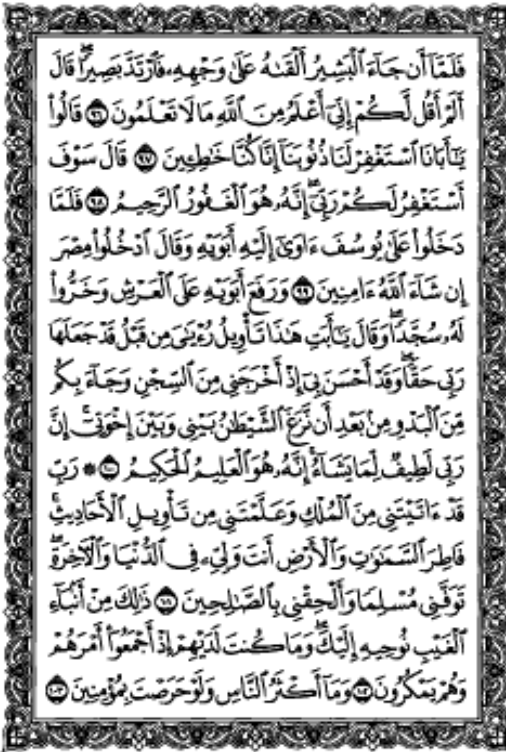 فَلَمَّآ أَن جَآءَ ٱلْبَشِيرُ أَلْقَىٰهُ عَلَىٰ وَجْهِهِۦ فَٱرْتَدَّ بَصِيرًا ۖ قَالَ
أَلَمْ أَقُل لَّكُمْ إِنِّىٓ أَعْلَمُ مِنَ ٱللَّهِ مَا لَا تَعْلَمُونَ ٩٦ قَالُوا۟
يَـٰٓأَبَانَا ٱسْتَغْفِرْ لَنَا ذُنُوبَنَآ إِنَّا كُنَّا خَـٰطِـِٔينَ ٩٧ قَالَ سَوْفَ
أَسْتَغْفِرُ لَكُمْ رَبِّىٓ ۖ إِنَّهُۥ هُوَ ٱلْغَفُورُ ٱلرَّحِيمُ ٩٨ فَلَمَّا
دَخَلُوا۟ عَلَىٰ يُوسُفَ ءَاوَىٰٓ إِلَيْهِ أَبَوَيْهِ وَقَالَ ٱدْخُلُوا۟ مِصْرَ
إِن شَآءَ ٱللَّهُ ءَامِنِينَ ٩٩ وَرَفَعَ أَبَوَيْهِ عَلَى ٱلْعَرْشِ وَخَرُّوا۟
لَهُۥ سُجَّدًا ۖ وَقَالَ يَـٰٓأَبَتِ هَـٰذَا تَأْوِيلُ رُءْيَـٰىَ مِن قَبْلُ قَدْ جَعَلَهَا
رَبِّى حَقًّا ۖ وَقَدْ أَحْسَنَ بِىٓ إِذْ أَخْرَجَنِى مِنَ ٱلسِّجْنِ وَجَآءَ بِكُم
مِّنَ ٱلْبَدْوِ مِنۢ بَعْدِ أَن نَّزَغَ ٱلشَّيْطَـٰنُ بَيْنِى وَبَيْنَ إِخْوَتِىٓ ۚ إِنَّ
رَبِّى لَطِيفٌ لِّمَا يَشَآءُ ۚ إِنَّهُۥ هُوَ ٱلْعَلِيمُ ٱلْحَكِيمُ ١٠٠ ۞ رَبِّ
قَدْ ءَاتَيْتَنِى مِنَ ٱلْمُلْكِ وَعَلَّمْتَنِى مِن تَأْوِيلِ ٱلْأَحَادِيثِ ۚ
فَاطِرَ ٱلسَّمَـٰوَٰتِ وَٱلْأَرْضِ أَنتَ وَلِىِّۦ فِى ٱلدُّنْيَا وَٱلْـَٔاخِرَةِ ۖ
تَوَفَّنِى مُسْلِمًا وَأَلْحِقْنِى بِٱلصَّـٰلِحِينَ ١٠١ ذَٰلِكَ مِنْ أَنۢبَآءِ
ٱلْغَيْبِ نُوحِيهِ إِلَيْكَ ۖ وَمَا كُنتَ لَدَيْهِمْ إِذْ أَجْمَعُوٓا۟ أَمْرَهُمْ
وَهُمْ يَمْكُرُونَ ١٠٢ وَمَآ أَكْثَرُ ٱلنَّاسِ وَلَوْ حَرَصْتَ بِمُؤْمِنِينَ ١٠٣